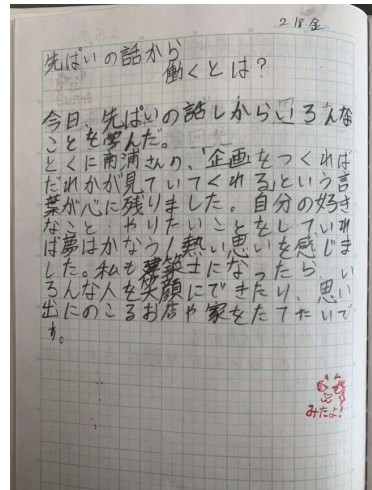 2 18 金
先ぱいの話から
働くとは?
今日、先ぱいの話しからいろんな
ことを学んだ。
とくに南浦さんの、「企画をつくれば
だれかが見ていてくれる」という言
葉が心に残りました。自分の好き
なこと・やりたいことをしていれ
ば夢はかなう!熱い思いを感じま
した。私も建築士になったら、い
ろんな人を笑顔にできたり、思い
出にのこるお店や家をたてたいで
す。
みたよ!